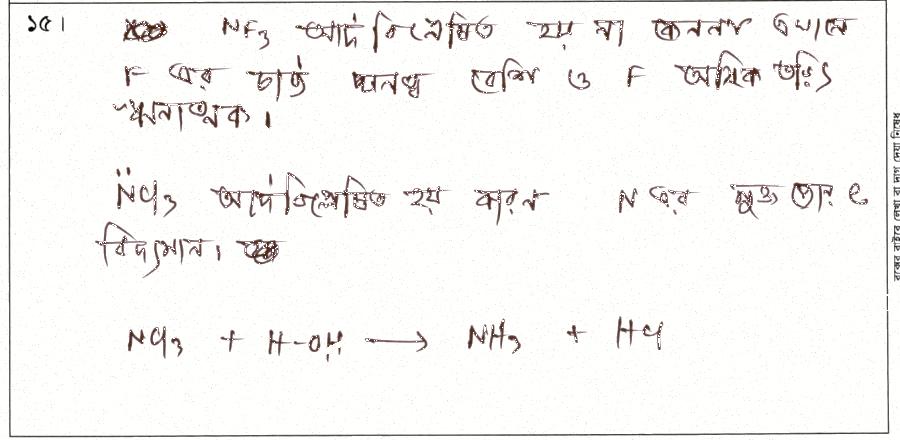 ১৫। NF3 আর্দ্র বিশ্লেষিত হয় না কেননা এখানে
F এর চার্জ ঘনত্ব বেশি ও F অধিক তড়িৎ
ঋনাত্মক।
N̈Cl3 আর্দ্রবিশ্লেষিত হয় কারন N এর মুক্ত জোর e
বিদ্যমান।
NCl3 + H-OH → NH3 + HCl